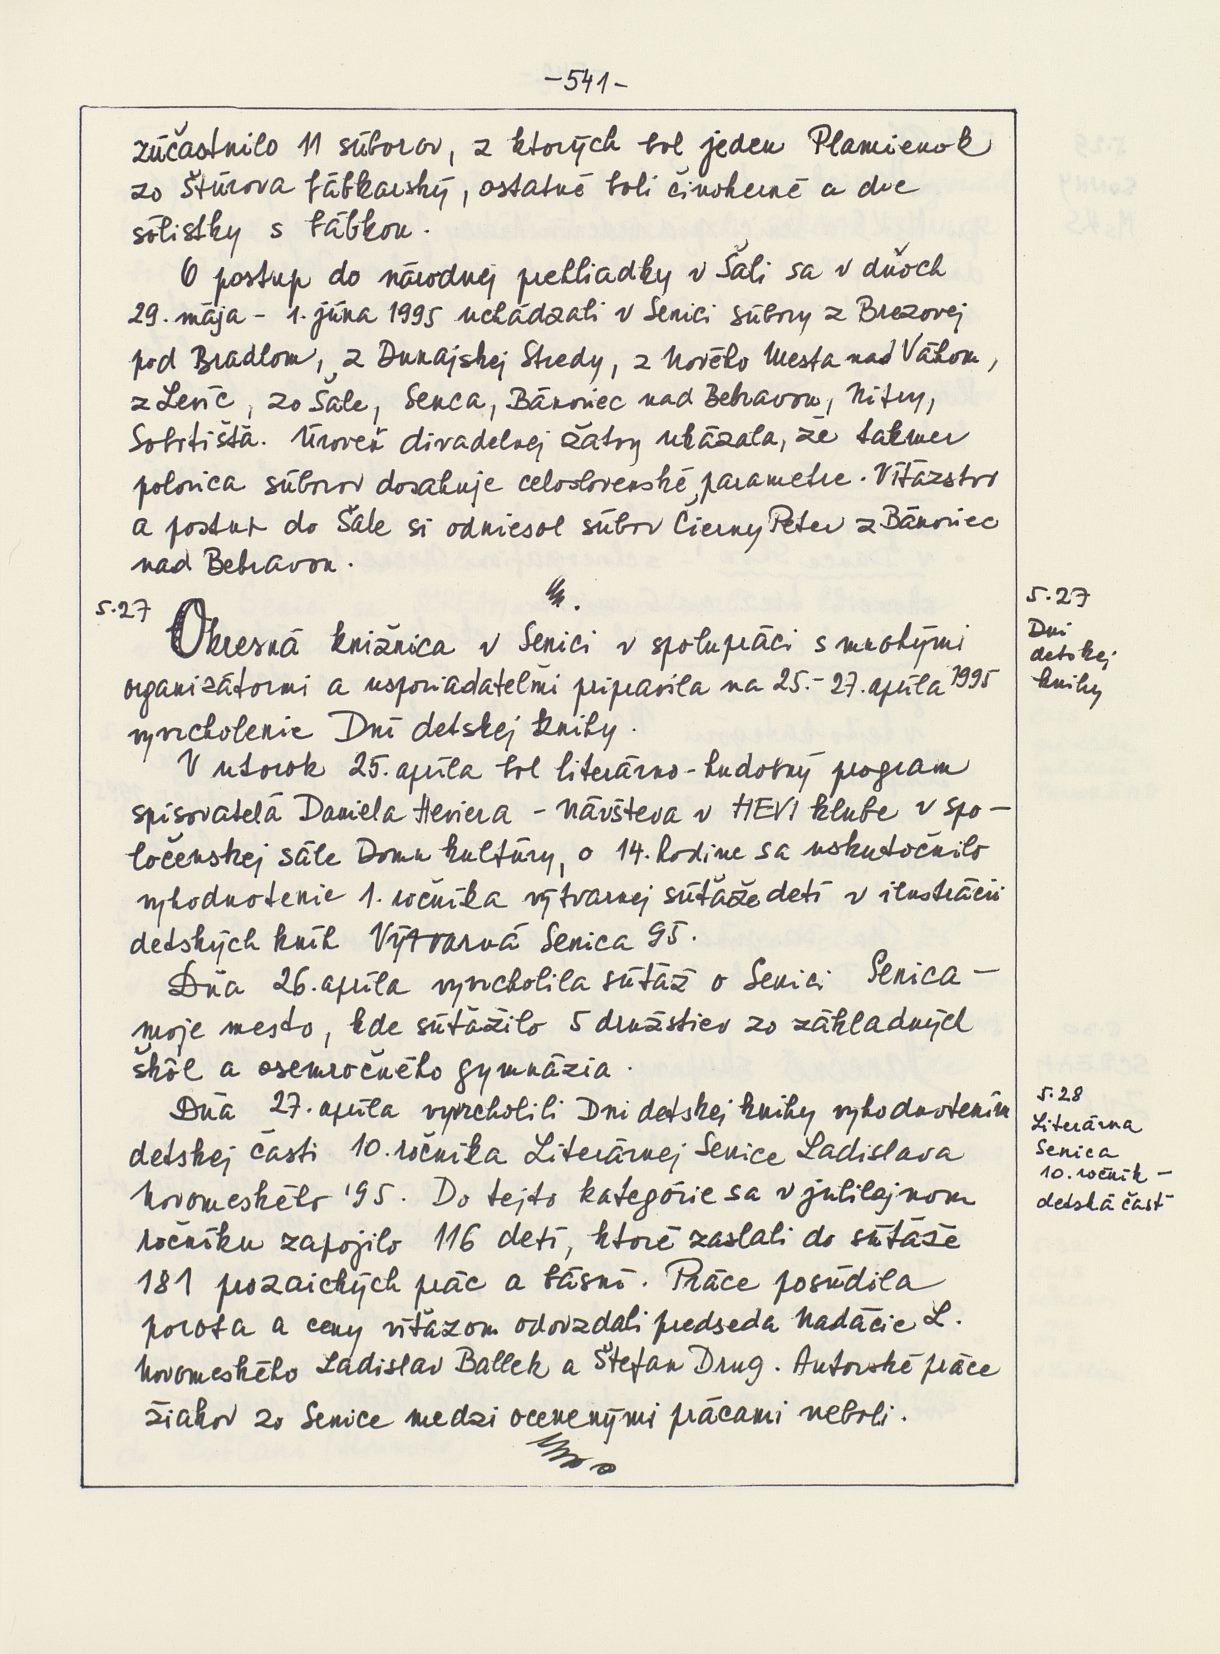 -541-
zúčastnilo 11 súborov, z ktorých bol jeden Plamienok
zo Štúrova bábkarský, ostatné boli činoherné a dve
sólistky s bábkou.
O postup do národnej prehliadky v Šali sa v dňoch
29. mája - 1. júna 1995 uchádzali v Senici súbory z Brezovej
pod Bradlom, z Dunajskej Stredy, z Nového Mesta nad Váhom,
z Levíc, zo Šale, Senca, Bánoviec nad Bebravou, Nitry,
Sobotišťa. Úroveň divadelnej žatvy ukázala, že takmer
polovica súborov dosahuje celoslovenské parametre. Víťazstvo
a postup do Šale si odniesol súbor Čierny Peter z Bánoviec
nad Bebravou.
5.27
Okresná knižnica v Senici v spolupráci s mnohými
organizátormi a usporiadateľmi pripravila na 25.-27. apríla 1995
vyvrcholenie Dní detskej knihy.
V utorok 25. apríla bol literárno-hudobný program
spisovateľa Daniela Heviera - Návšteva v HEVI klube v spo-
ločenskej sále Domu kultúry, o 14. hodine sa uskutočnilo
vyhodnotenie 1. ročníka výtvarnej súťaže detí v ilustrácii
detských kníh Výtvarná Senica 95.
Dňa 26. apríla vyvrcholila súťaž o Senici Senica -
moje mesto, kde súťažilo 5 družstiev zo základných
škôl a osemročného gymnázia.
Dňa 27. apríla vyvrcholili Dni detskej knihy vyhodnotením
detskej časti 10. ročníka Literárnej Senice Ladislava
Novomeského '95. Do tejto kategórie sa v jubilejnom
ročníku zapojilo 116 detí, ktoré zaslali do súťaže
181 prozaických prác a básní. Práce posúdila
porota a ceny víťazom odovzdali predseda Nadácie L.
Novomeského Ladislav Ballek a Štefan Drug. Autorské práce
žiakov zo Senice medzi ocenenými prácami neboli.
5.27
Dni
detskej
knihy
5.28
Literárna
Senica
10. ročník -
detská časť